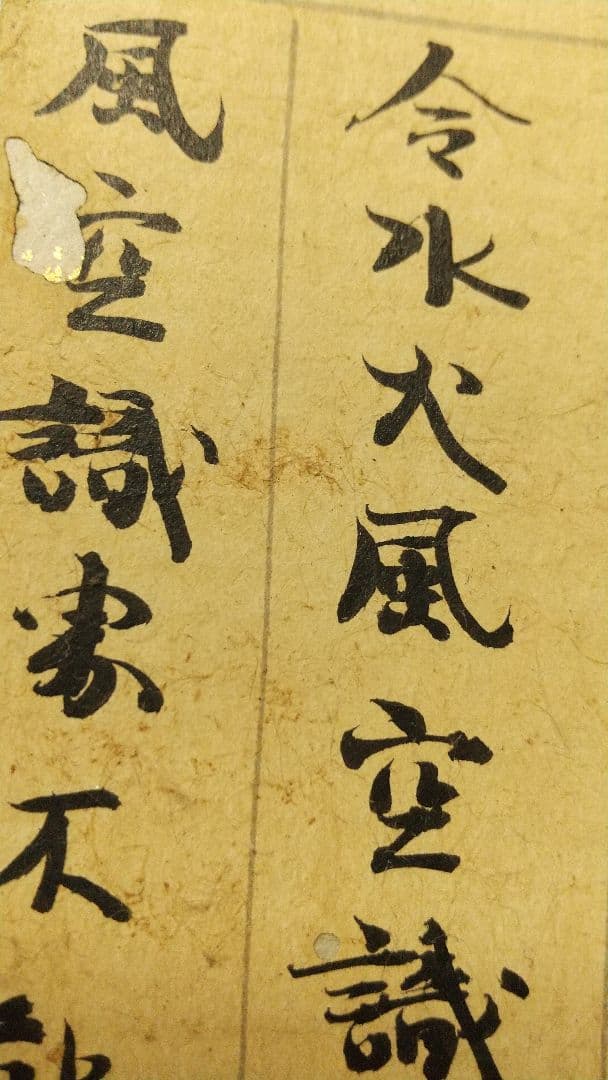 令水火風空識
風空識不